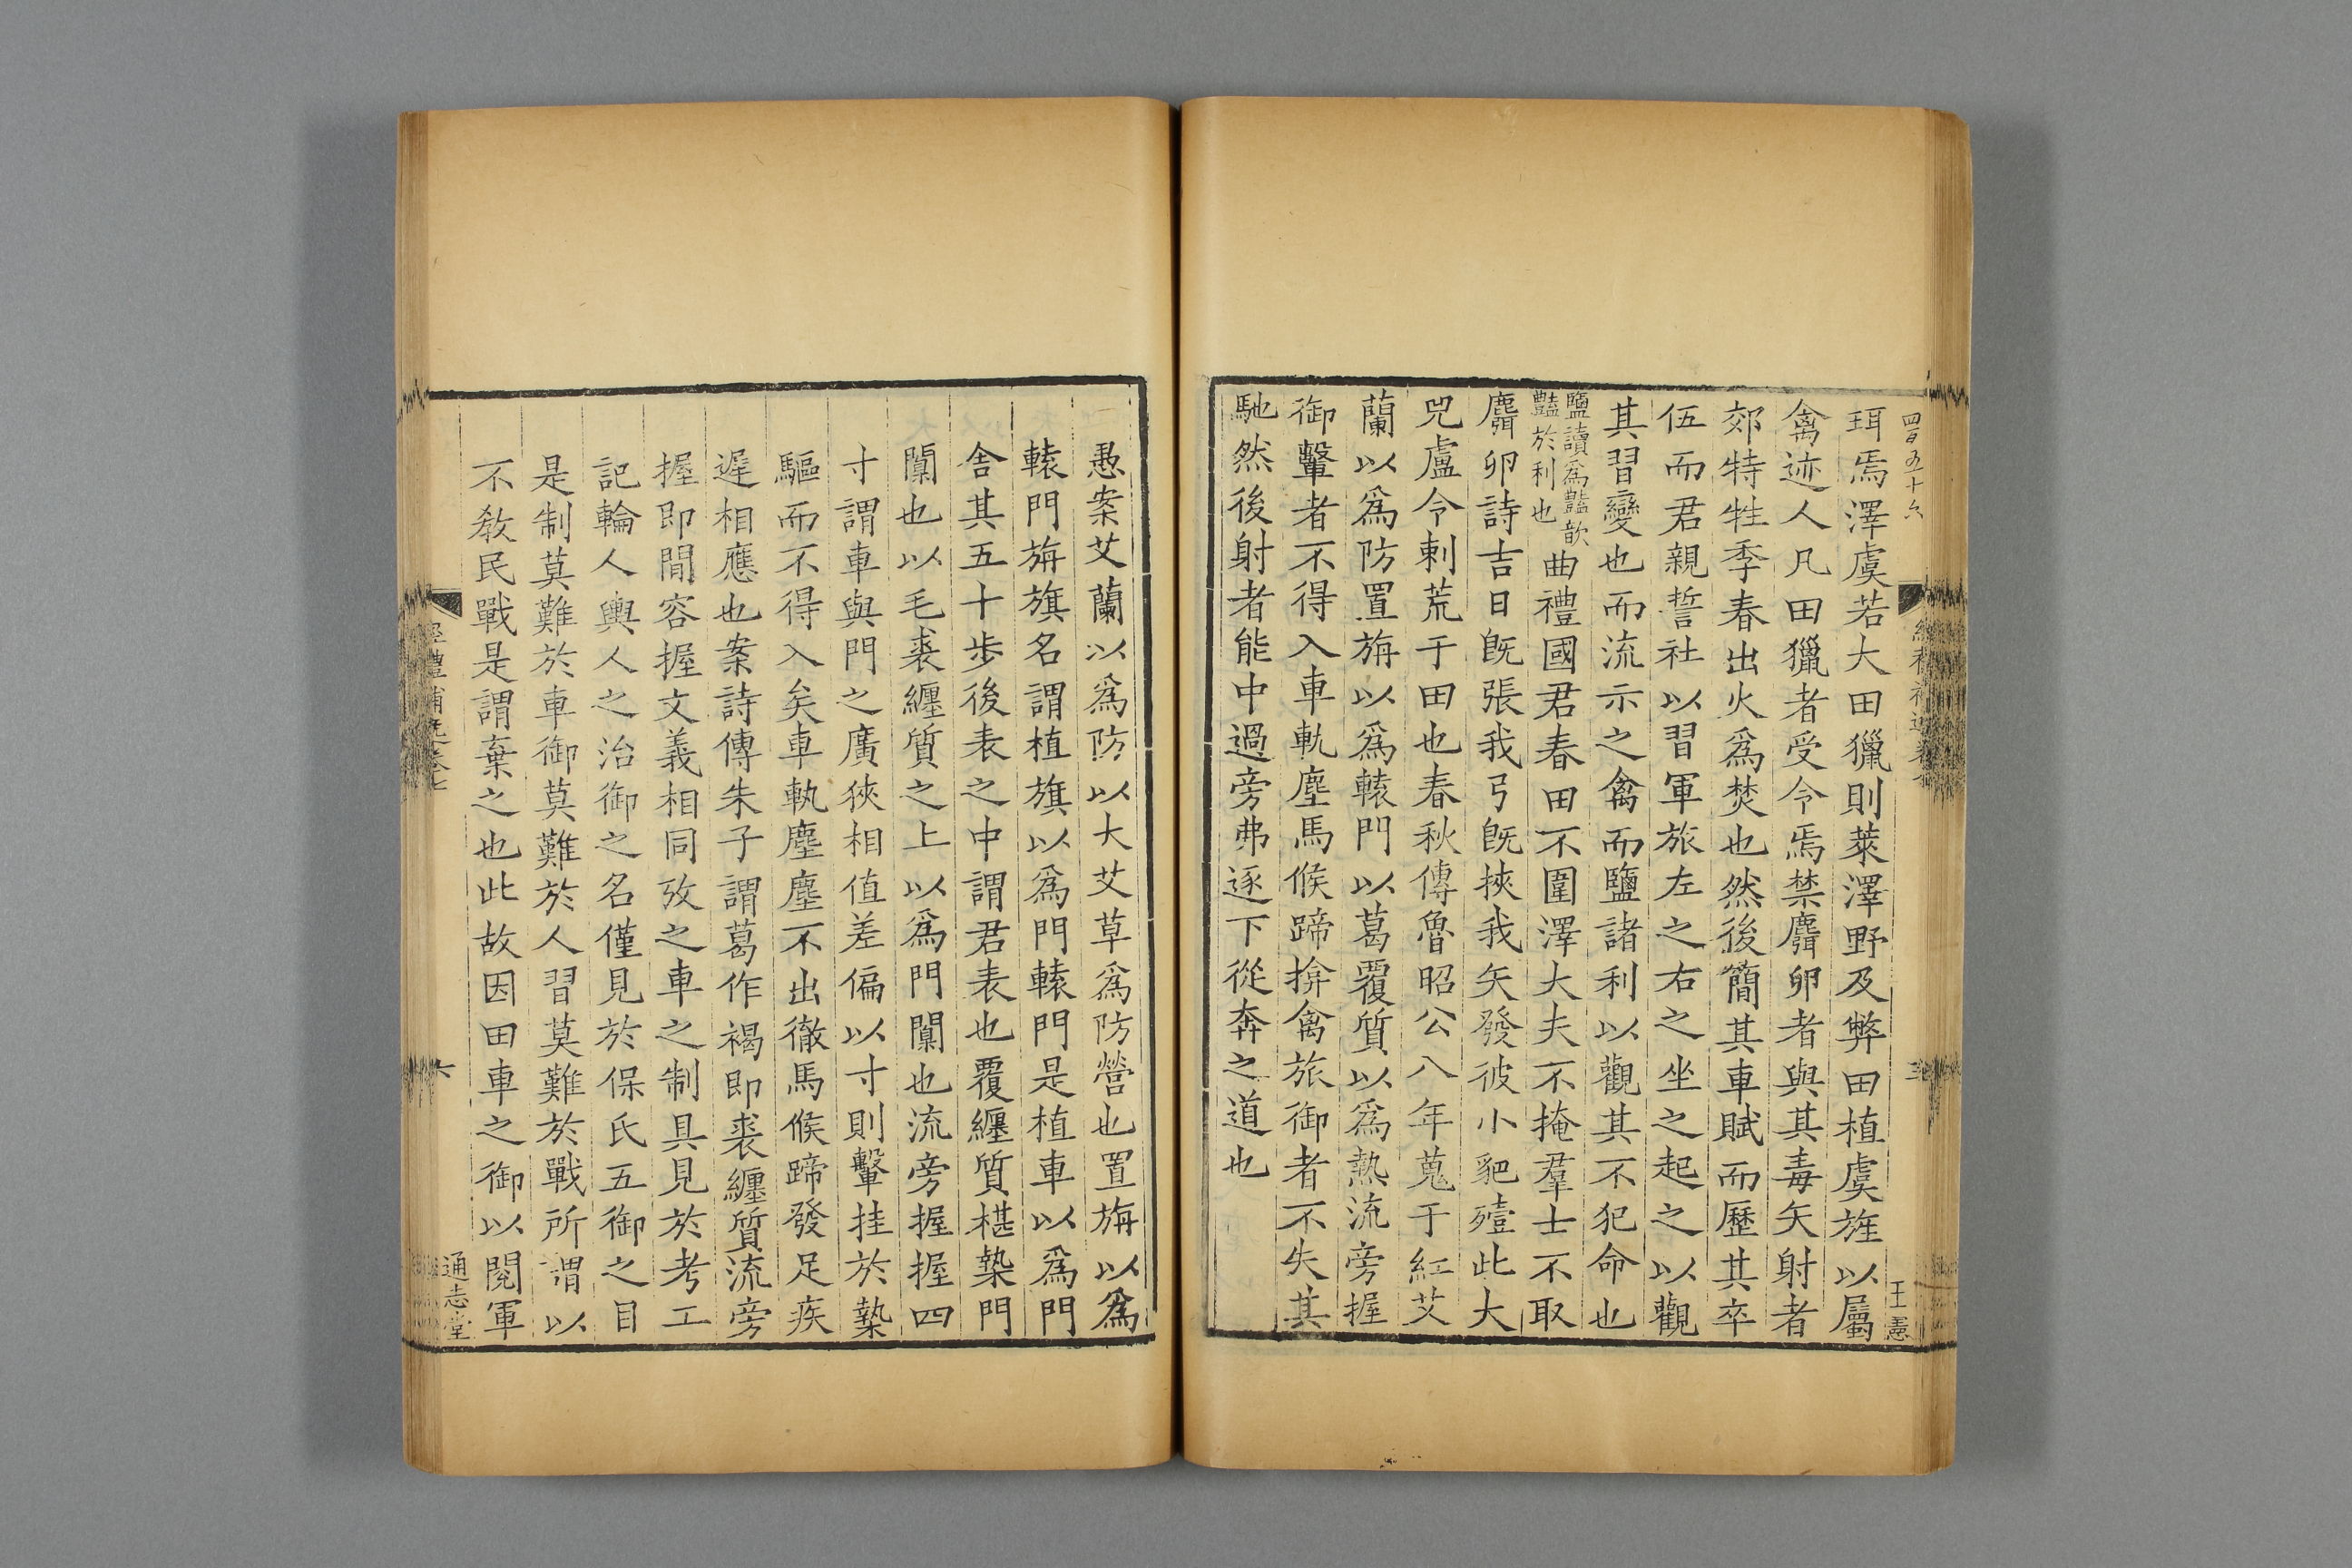 四百五十六
珥焉澤虞若大田獵則萊澤野及弊田植虞旌以屬
禽迹人凡田獵者受令焉禁麛卵者與其毒矢射者
郊特牲季春出火爲焚也然後簡其車賦而歷其卒
伍而君親誓社以習軍旅左之右之坐之起之以觀
其習變也而流示之禽而鹽諸利以觀其不犯命也
鹽讀爲豔歆
豔於利也
曲禮國君春田不圍澤大夫不掩羣士不取
麛卵詩吉日旣張我弓旣挾我矢發彼小豝殪此大
兕盧令刺荒于田也春秋傳魯昭公八年蒐于紅艾
蘭以爲防置旃以爲轅門以葛覆質以爲熱流旁握
御轚者不得入車軌塵馬候蹄揜禽旅御者不失其
馳然後射者能中過旁弗逐下從奔之道也
王憲
愚案艾蘭以爲防以大艾草爲防營也置旃以爲
轅門旃旗名謂植旗以爲門轅門是植車以爲門
舎其五十步後表之中謂君表也覆纏質椹槷門
闑也以毛裘纏質之上以爲門闑也流旁握握四
寸謂車與門之廣狹相值差偏以寸則轚挂於槷
驅而不得入矣車執塵塵不出徹馬候蹄發足疾
遲相應也案詩傳朱子謂葛作褐即裘纏質流旁
握即間容握文義相同攷之車之制具見於考工
記輪人輿人之治御之名僅見於保氏五御之目
是制莫難於車御莫難於人習莫難於戰所謂以
不教民戰是謂棄之也此故因田車之御以閱軍
經禮補逸卷七
六
通志堂